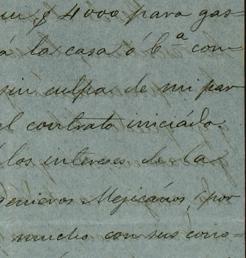 $ 4000 para gas
á la casa ó 6.ª con
sin culpa de mi par
el contrato iniciado.
los intereses de la
genieros Mejicanos, por
mucho con sus cono